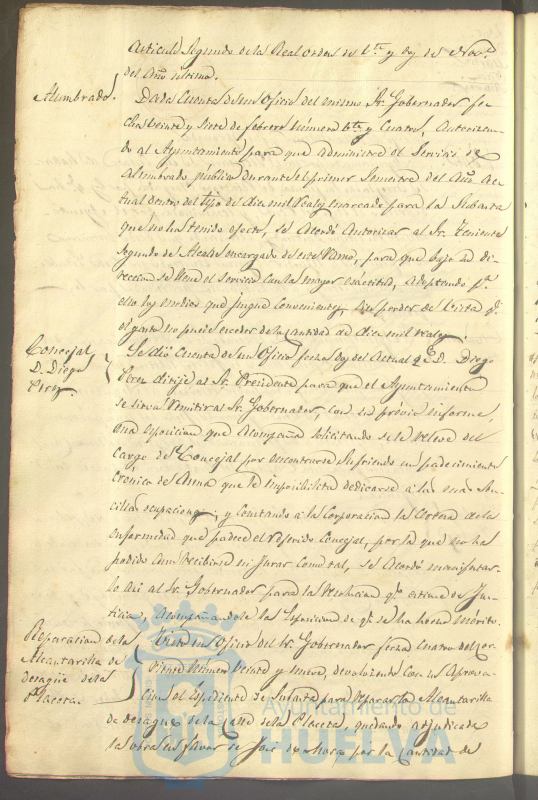 Articulo Segundo de la Real orden de 6 y doy de Nov.e
del Año último.
Alumbrado.
Dada Cuenta de un Oficio del mismo Sr. Gobernador fe-
cha veinte y siete de febrero número y Cuatro, Autorizan-
do al Ayuntamiento para que administre el Servicio de
Alumbrado publico durante el primer Semestre del Año Ac-
tual dentro del tipo de diez mil reales marcado para la Subasta
que no ha tenido efecto, se Acordó Autorizar al Sr. Teniente
Segundo de Alcalde encargado de este Ramo, para que bajo su di-
reccion se lleve el servicio con la mayor exactitud, adoptando p.a
ello los medios que juzgue convenientes, sin perder de vista q.e
el gasto no puede exceder de la Cantidad de diez mil reales.
Concejal
D. Diego
Perez.
Se dió Cuenta de un Oficio fecha dos del Actual q.e D. Diego
Perez dirije al Sr. Presidente para que el Ayuntamiento
se sirva remitir al Sr. Gobernador, con su prévio informe,
una esposicion que Acompaña solicitando se le releve del
Cargo de Concejal por encontrarse Sufriendo un padecimiento
Crónico de Asma que le imposibilita dedicarse a las mas Sen-
cillas ocupaciones; y Constando a la Corporacion la Certeza de la
enfermedad que padece el referido Concejal, por la que no ha
podido Aun recibirse ni Jurar Como tal, se Acordó manifestar-
lo Asi al Sr. Gobernador para la resolucion q.e estime de Jus-
ticia, Acompañandole la Esposicion de q.e se ha hecho mérito.
Reparacion de la
Alcantarilla de
desagüe de la
Placeta.
Visto un Oficio del Sr. Gobernador fecha Cuatro del Cor-
riente número veinte y nueve, devolviendo Con su Aproba-
cion el Espediente de Subasta para reparar la Alcantarilla
de desagüe de la Calle de la Placeta, quedando adjudicada
la obra en favor de José por la Cantidad de
Ayuntamiento de
HUELVA